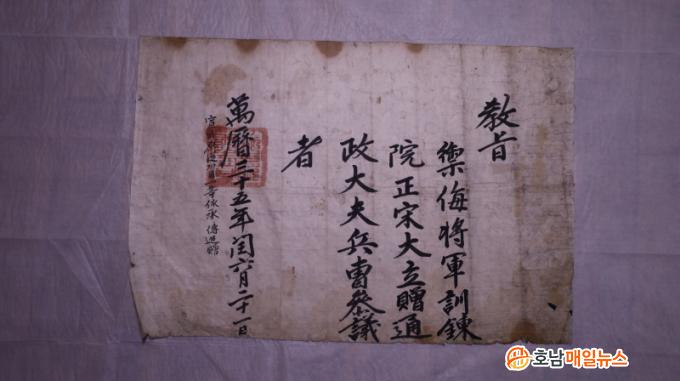 敎旨
禦侮將軍訓鍊
院正宋大立贈通
政大夫兵曹叅議
者
萬曆三十五年閏六月二十一日
一等依承 傳追贈
호남매일뉴스